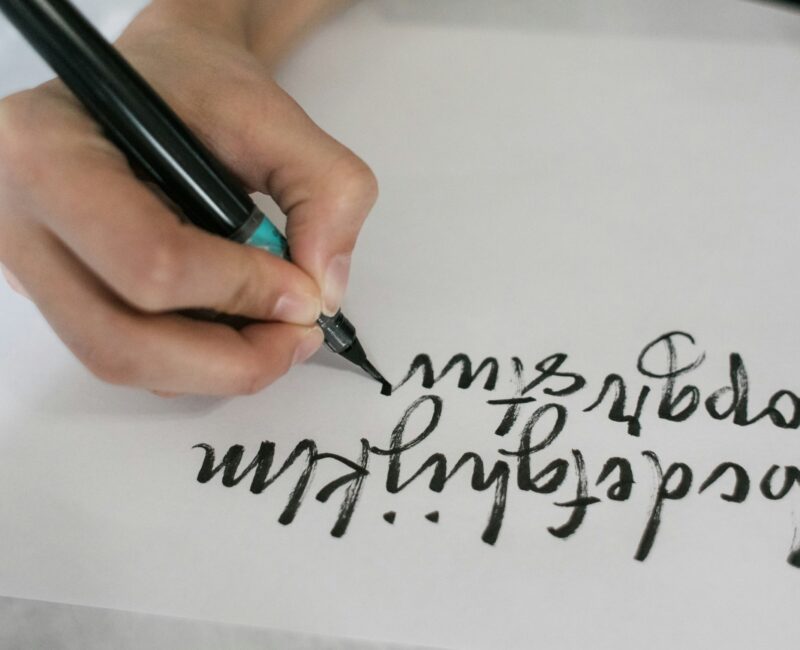 bcdefghijklm
opqrstuv